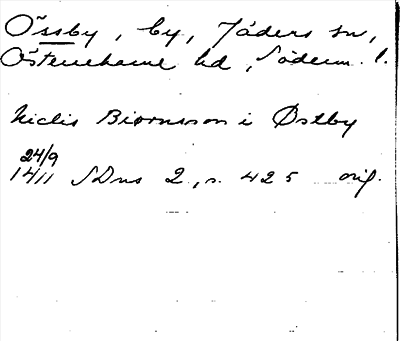 Össby, by, Jäders sn,
Österrekarne hd, Söderm. l.
Niclis Biørnsson i Østby
24/9
1411 SDns 2, s. 425 orig.